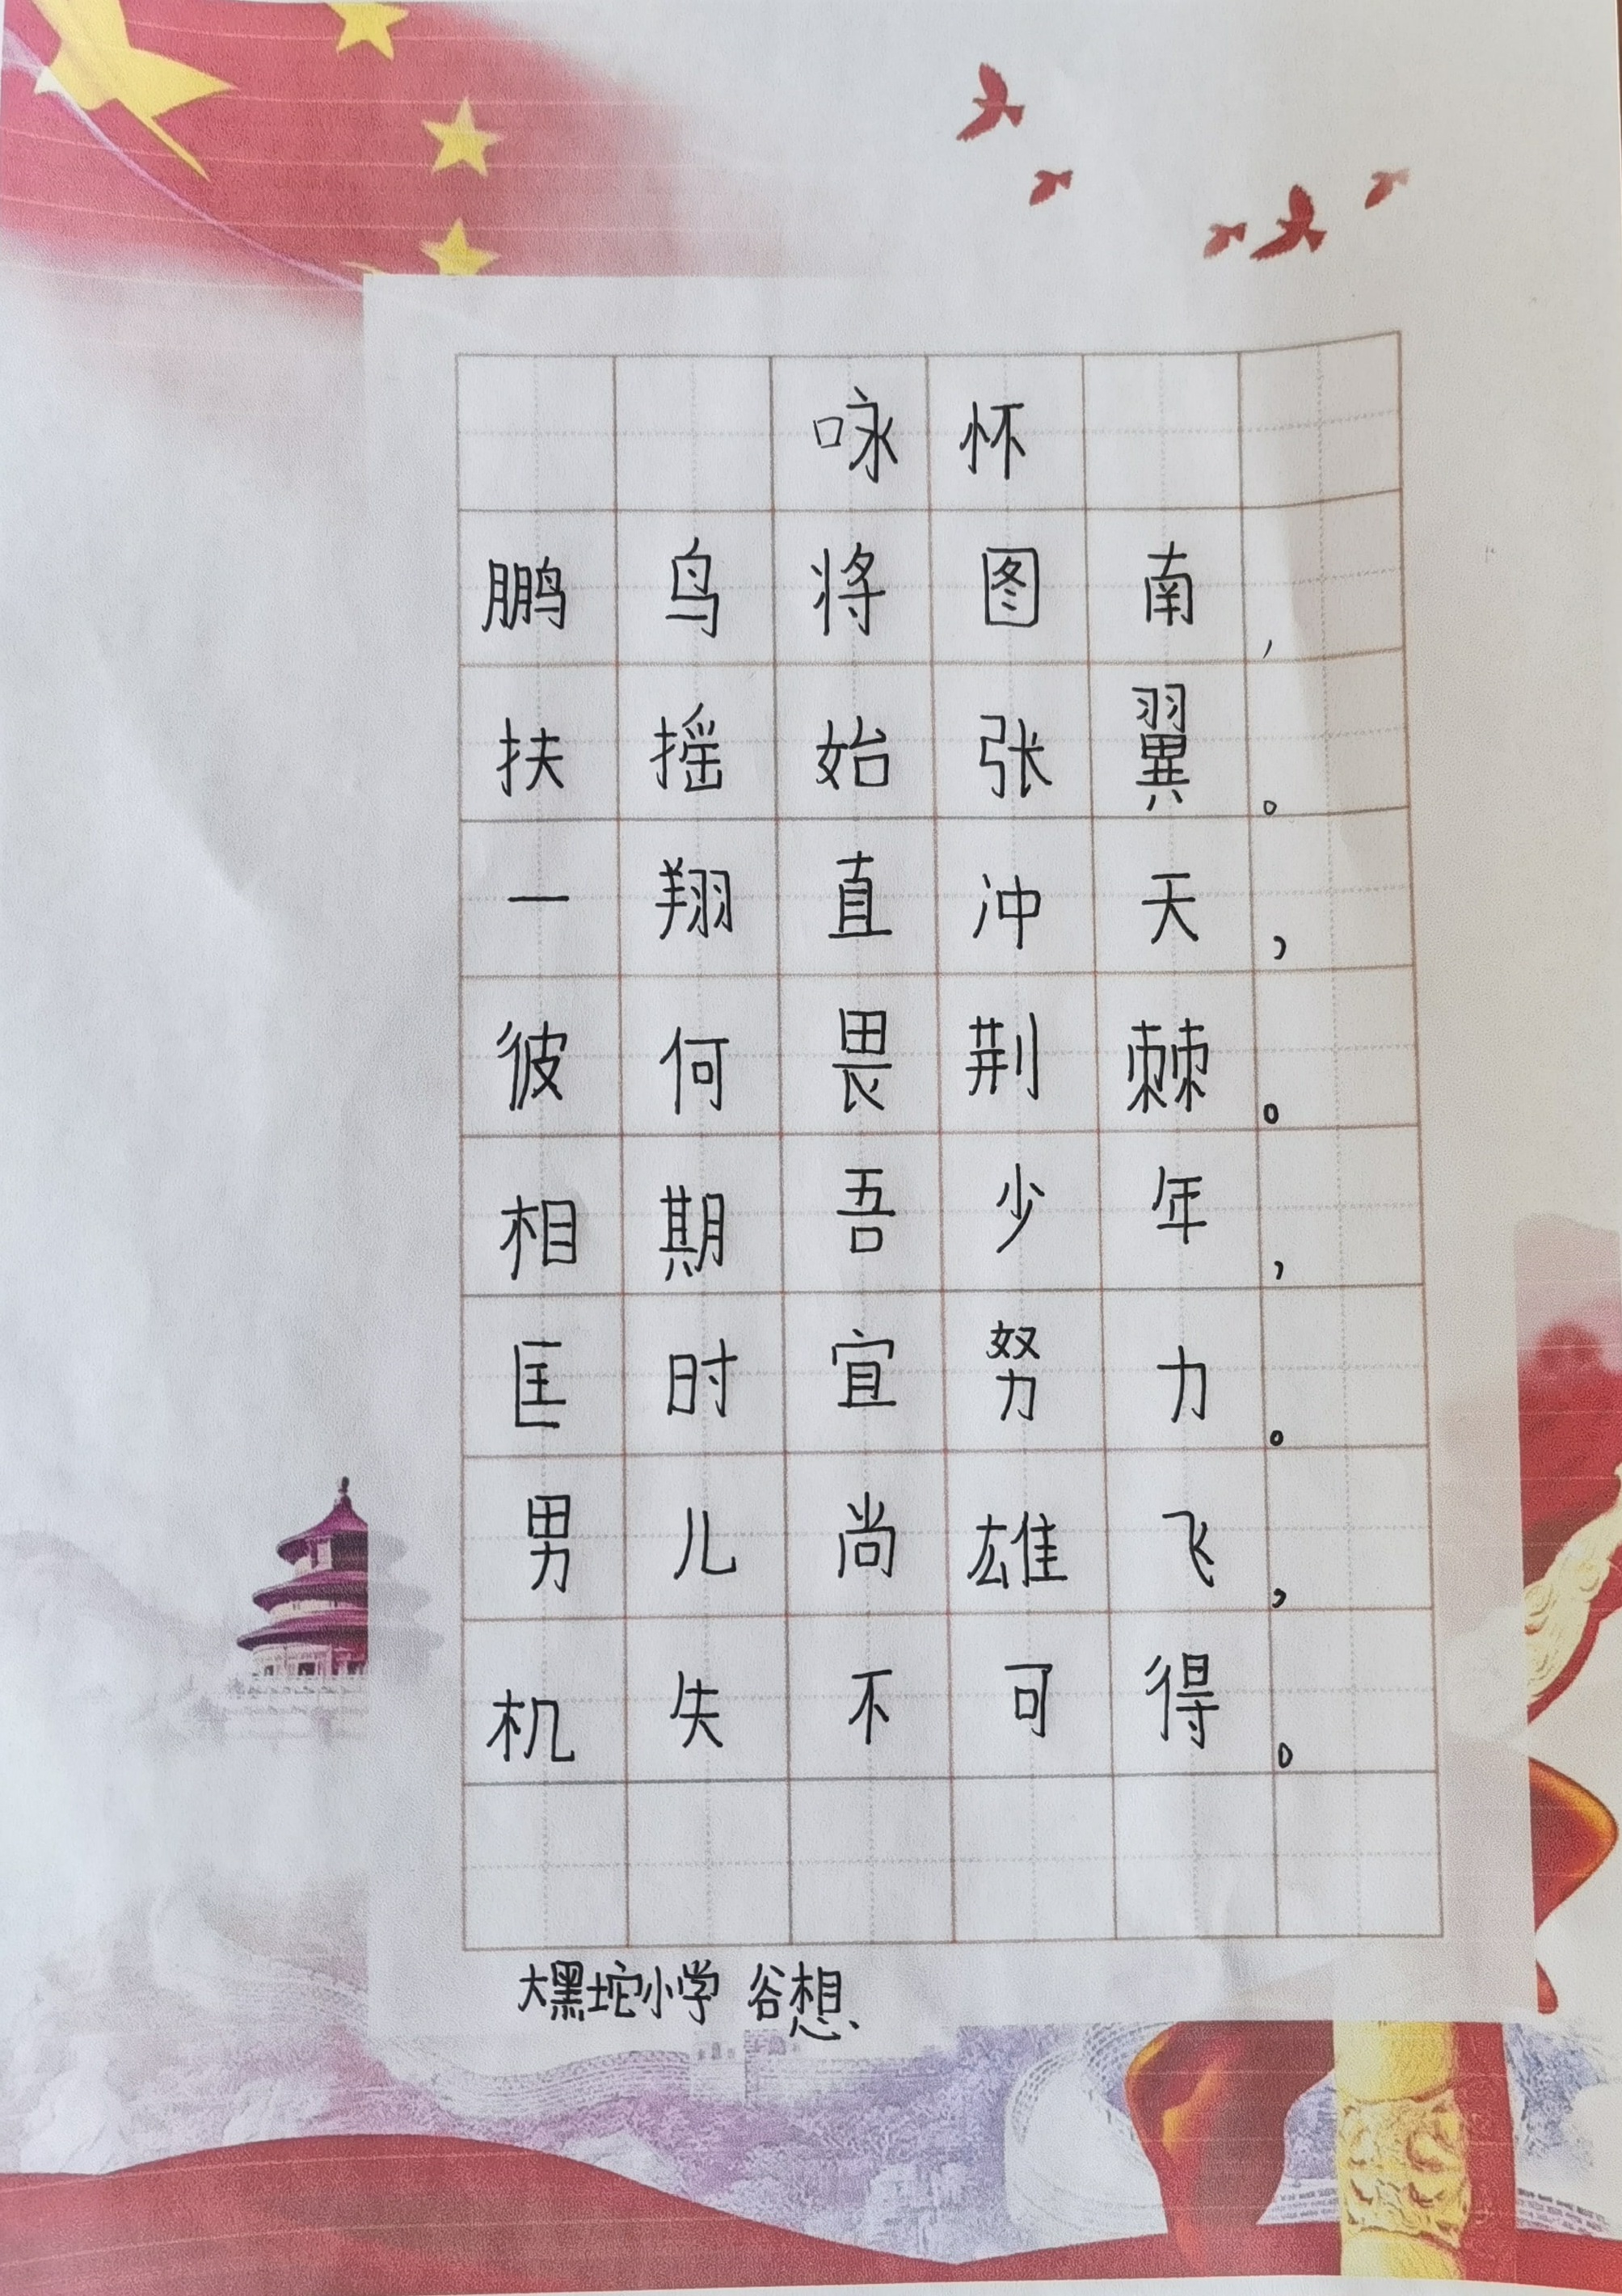 咏怀
鹏鸟将图南，
扶摇始张翼。
一翔直冲天，
彼何畏荆棘。
相期吾少年，
匡时宜努力。
男儿尚雄飞，
机失不可得。
大黑坨小学 谷想、